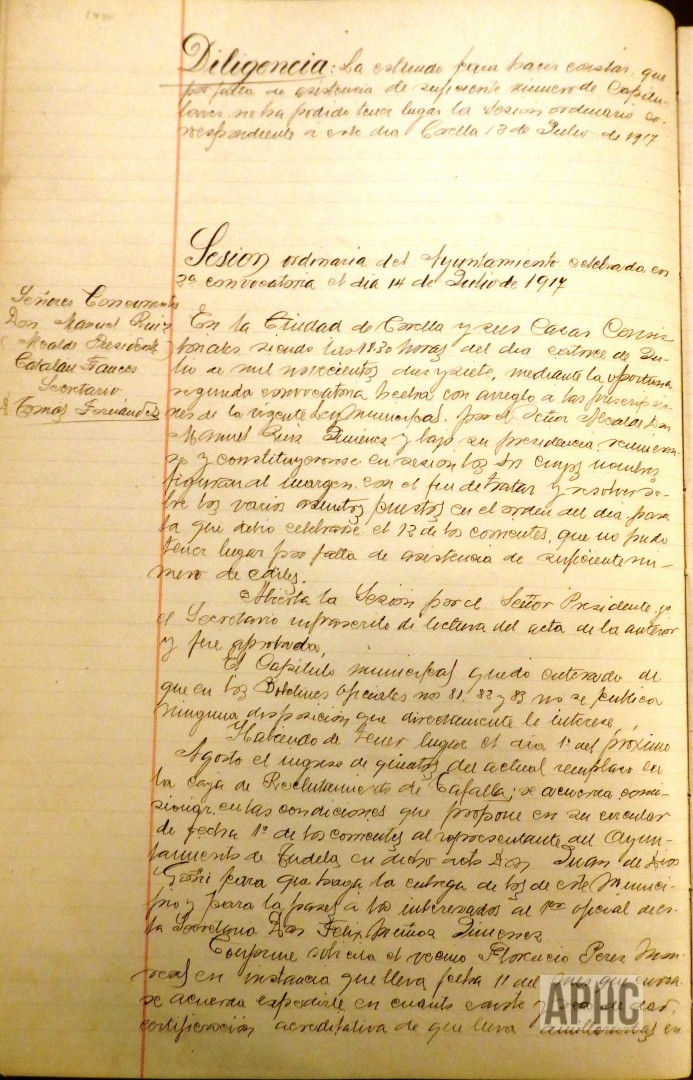 Diligencia: La extiendo para hacer constar que
por falta de asistencia de suficiente número de Capitu-
lares, no ha podido tener lugar la sesion ordinaria co-
rrespondiente a este dia Corella 13 de Julio de 1917
Sesion ordinaria del Ayuntamiento celebrada en
2ª convocatoria el dia 14 de Julio de 1917
Señores Concurrentes
Don Manuel Ruiz
Alcalde Presidente
Catalán Frances
Secretario
Tomas Fernández
En la Ciudad de Corella y sus Casas Consis-
toriales siendo las 18.30 horas del dia catorce de Ju-
lio de mil novecientos diez y siete, mediante la oportuna
segunda convocatoria hecha con arreglo a las prescripcio-
nes de la vigente Ley municipal, por el Señor Alcalde Don
Manuel Ruiz Jimenez y bajo su presidencia reunieron-
se y constituyeronse en sesion los Sres cuyos nombres
figuran al margen con el fin de tratar y resolver so-
bre los varios asuntos puestos en el orden del dia para
la que debio celebrarse el 12 de los corrientes, que no pudo
tener lugar por falta de asistencia de suficiente nu-
mero de ediles.
Abierta la Sesion por el Señor Presidente yo
el Secretario infrascrito di lectura del acta de la anterior
y fue aprobada.
El Capitulo municipal quedó enterado de
que en los Boletines oficiales nos 81, 82 y 83 no se publica
ninguna disposición que directamente le interese.
Habiendo de tener lugar el dia 1º del próximo
Agosto el ingreso de quintos del actual remplazo en
la caja de Reclutamiento de Tafalla; se acuerda comi-
sionar, en las condiciones que propone en su circular
de fecha 1º de los corrientes al representante del Ayun-
tamiento de Tudela en dicho acto Don Juan de Dios
Goñi para que haga la entrega de los de este Munici-
pio y para la pases a los interesados al 1er oficial de es-
ta Secretaria Don Felix Muñoz Jimenez
Conforme solicita el vecino Florencio Perez
en instancia que lleva fecha 11 del mes que cursa
se acuerda expedirle en cuanto conste y
certificación acreditativa de que lleva en
APHC